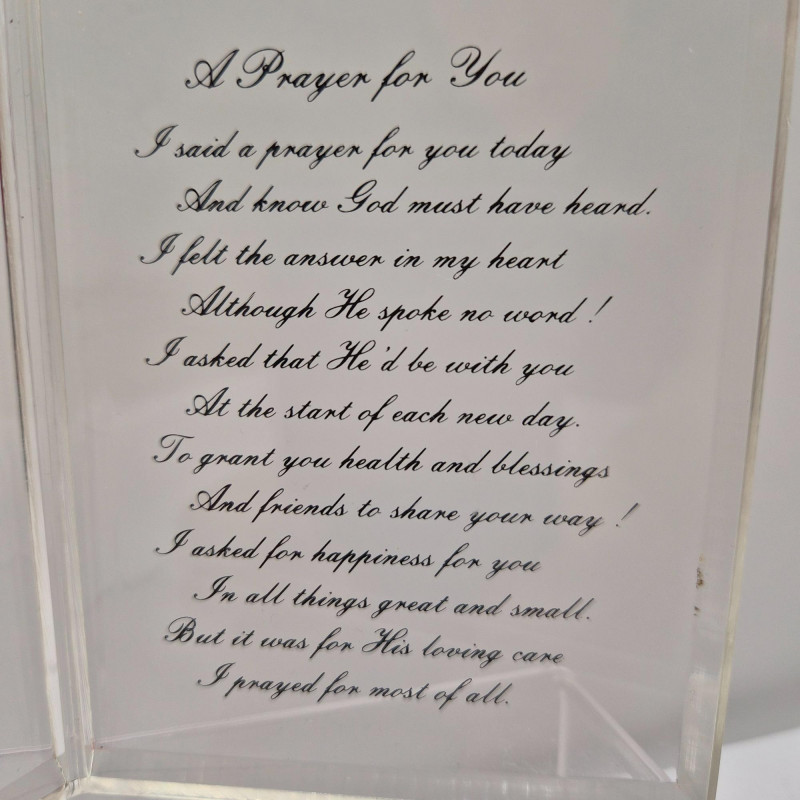 A Prayer for You
I said a prayer for you today
And know God must have heard.
I felt the answer in my heart
Although He spoke no word!
I asked that He'd be with you
At the start of each new day.
To grant you health and blessings
And friends to share your way!
I asked for happiness for you
In all things great and small.
But it was for His loving care
I prayed for most of all.